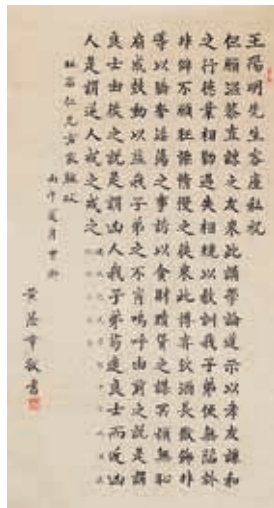 王陽明先生客座私祝
但願溫恭直諒之友來此講學論道示以孝友謙和
之行德業相勸過失相規以教訓我子弟使無陷於
非僻不願狂懆惰慢之徒來此博弈飲酒長傲飾非
導以驕奢淫蕩之事誘以貪財黷貨之謀冥頑無恥
扇惑鼓動以益我子弟之不肖嗚呼由前之說是謂
良士由後之說是謂凶人我子弟苟遠良士而近凶
人是謂逆人戒之戒之
仁兄方家
丙午夏月
黃敬書